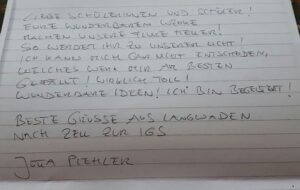 LIEBE SCHÜLERINNEN UND SCHÜLER!
EURE WUNDERBAREN WERKE
MACHEN UNSERE FILME HELLER!
SO WERDET IHR ZU UNSEREM LICHT!
ICH KANN MICH GAR NICHT ENTSCHEIDEN,
WELCHES WERK MIR AM BESTEN
GEFÄLLT! WIRKLICH TOLL!
WUNDERBARE IDEEN! ICH BIN BEGEISTERT!
BESTE GRÜSSE AUS LANGWADEN
NACH ZELL ZUR IGS
JUTTA PLEHLER